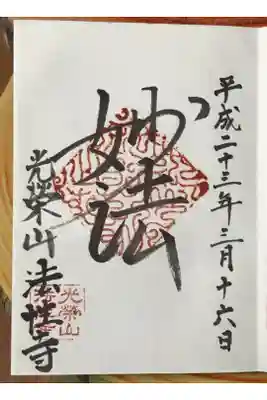 平成二十三年三月十六日
妙法
光榮山法性寺
光榮山